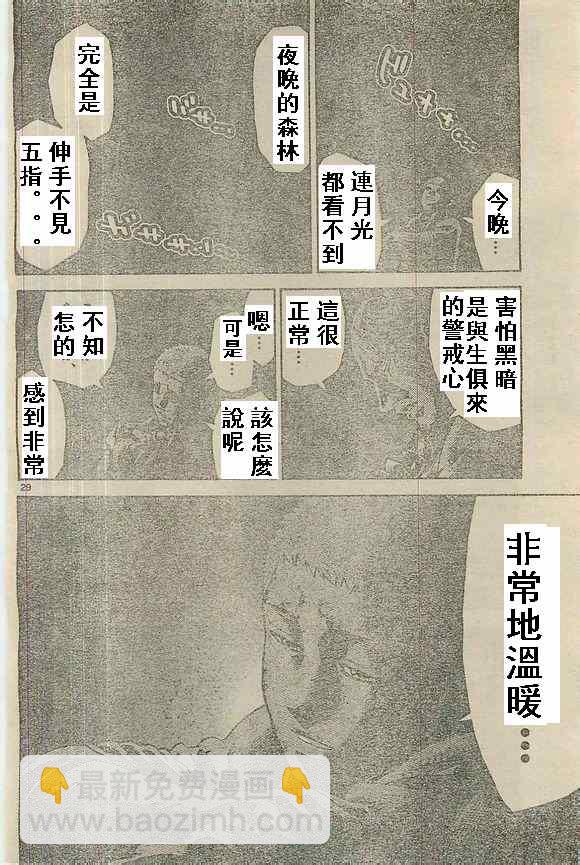 今晚……
連月光
都看不到
夜晚的森林
完全是
伸手不見
五指。。。
害怕黑暗
是與生俱來
的警戒心
這很
正常……
嗯……
可是……
該怎麼
說呢
不知
怎的、
感到非常
29
非常地溫暖……
最新免费漫画
www.baozimh.com